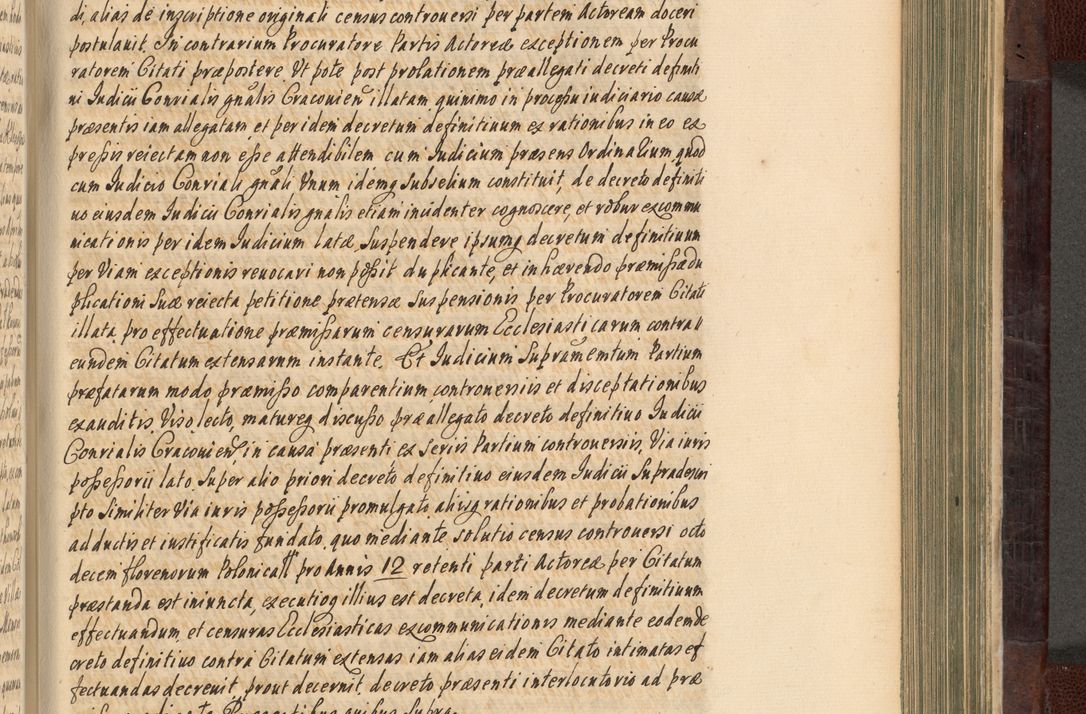 di, alias de inscriptione originali census controuersi per partem Actoream doceri
postulauit. In contrarium Procuratore Partis Actoreæ exceptionem per Procu
ratorem Citati præpostere Ut pote post prolationem præallegati decreti definiti
ui Judicii Conrialis gnalis Cracouien illatam, quinimo in processu iudiciario causæ
præsentis iam allegatam, et per idem decretum definitiuum ex rationibus in eo ex
pressis reiectam non esse attendibilem cum Judicium præsens Ordinarium quod
cum Judicio Conriali gnali Unum idemq subselium constituit, de decreto definiti
uo eiusdem Judicii Conrialis gnalis etiam incidenter cognoscere, et robur excommu
nicationis per idem Judicium latæ, Suspendere ipsumq decretum definitiuum
per Viam exceptionis reuocari non possit duplicante, et inhærendo præmissæ du
plicationi Suæ reiecta petitione prætensæ Suspensionis per Procuratorem Citati
illata, pro effectuatione præmissarum censurarum Ecclesiasticarum contra
eundem Citatum extensarum instante. Et Judicium Supramentum Partium
præfatarum modo præmisso comparentium, controuersiis et disceptationibus
exauditis, Viso lecto, matureq discusso præallegato decreto definitiuo Judicii
Conrialis Cracouien in causa præsenti ex Seriis Partium controuersiis, Via iuris
possessorii lato, Super alio priori decreto definitiuo eiusdem Judicii Supradescri
pto Similiter Via iuris possessorii promulgato, aliisq rationibus et probationibus
adductis et iustificatis fundato, quo mediante solutio census controuersi octo
decem florenorum Polonicall pro Annis 12 retenti parti Actoreæ per Citatum
præstanda est iniuncta, executioq illius est decreta, idem decretum definitiuum
effectuandum, et censuras Ecclesiasticas excommunicationis mediante eodem de
creto definitiuo contra Citatum extensas iam alias eidem Citato intimatas ef
fectuandas decreuit, prout decernit, decreto præsenti interlocutorio ad præ